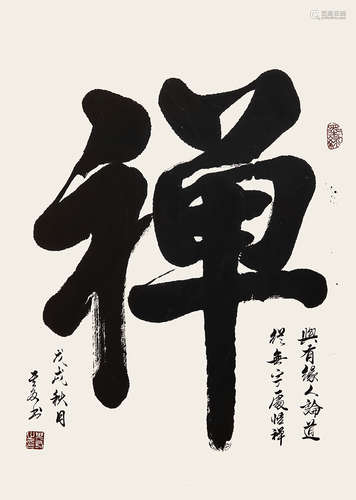 禅
與有緣人論道
從無字處悟禅
戊戌秋月